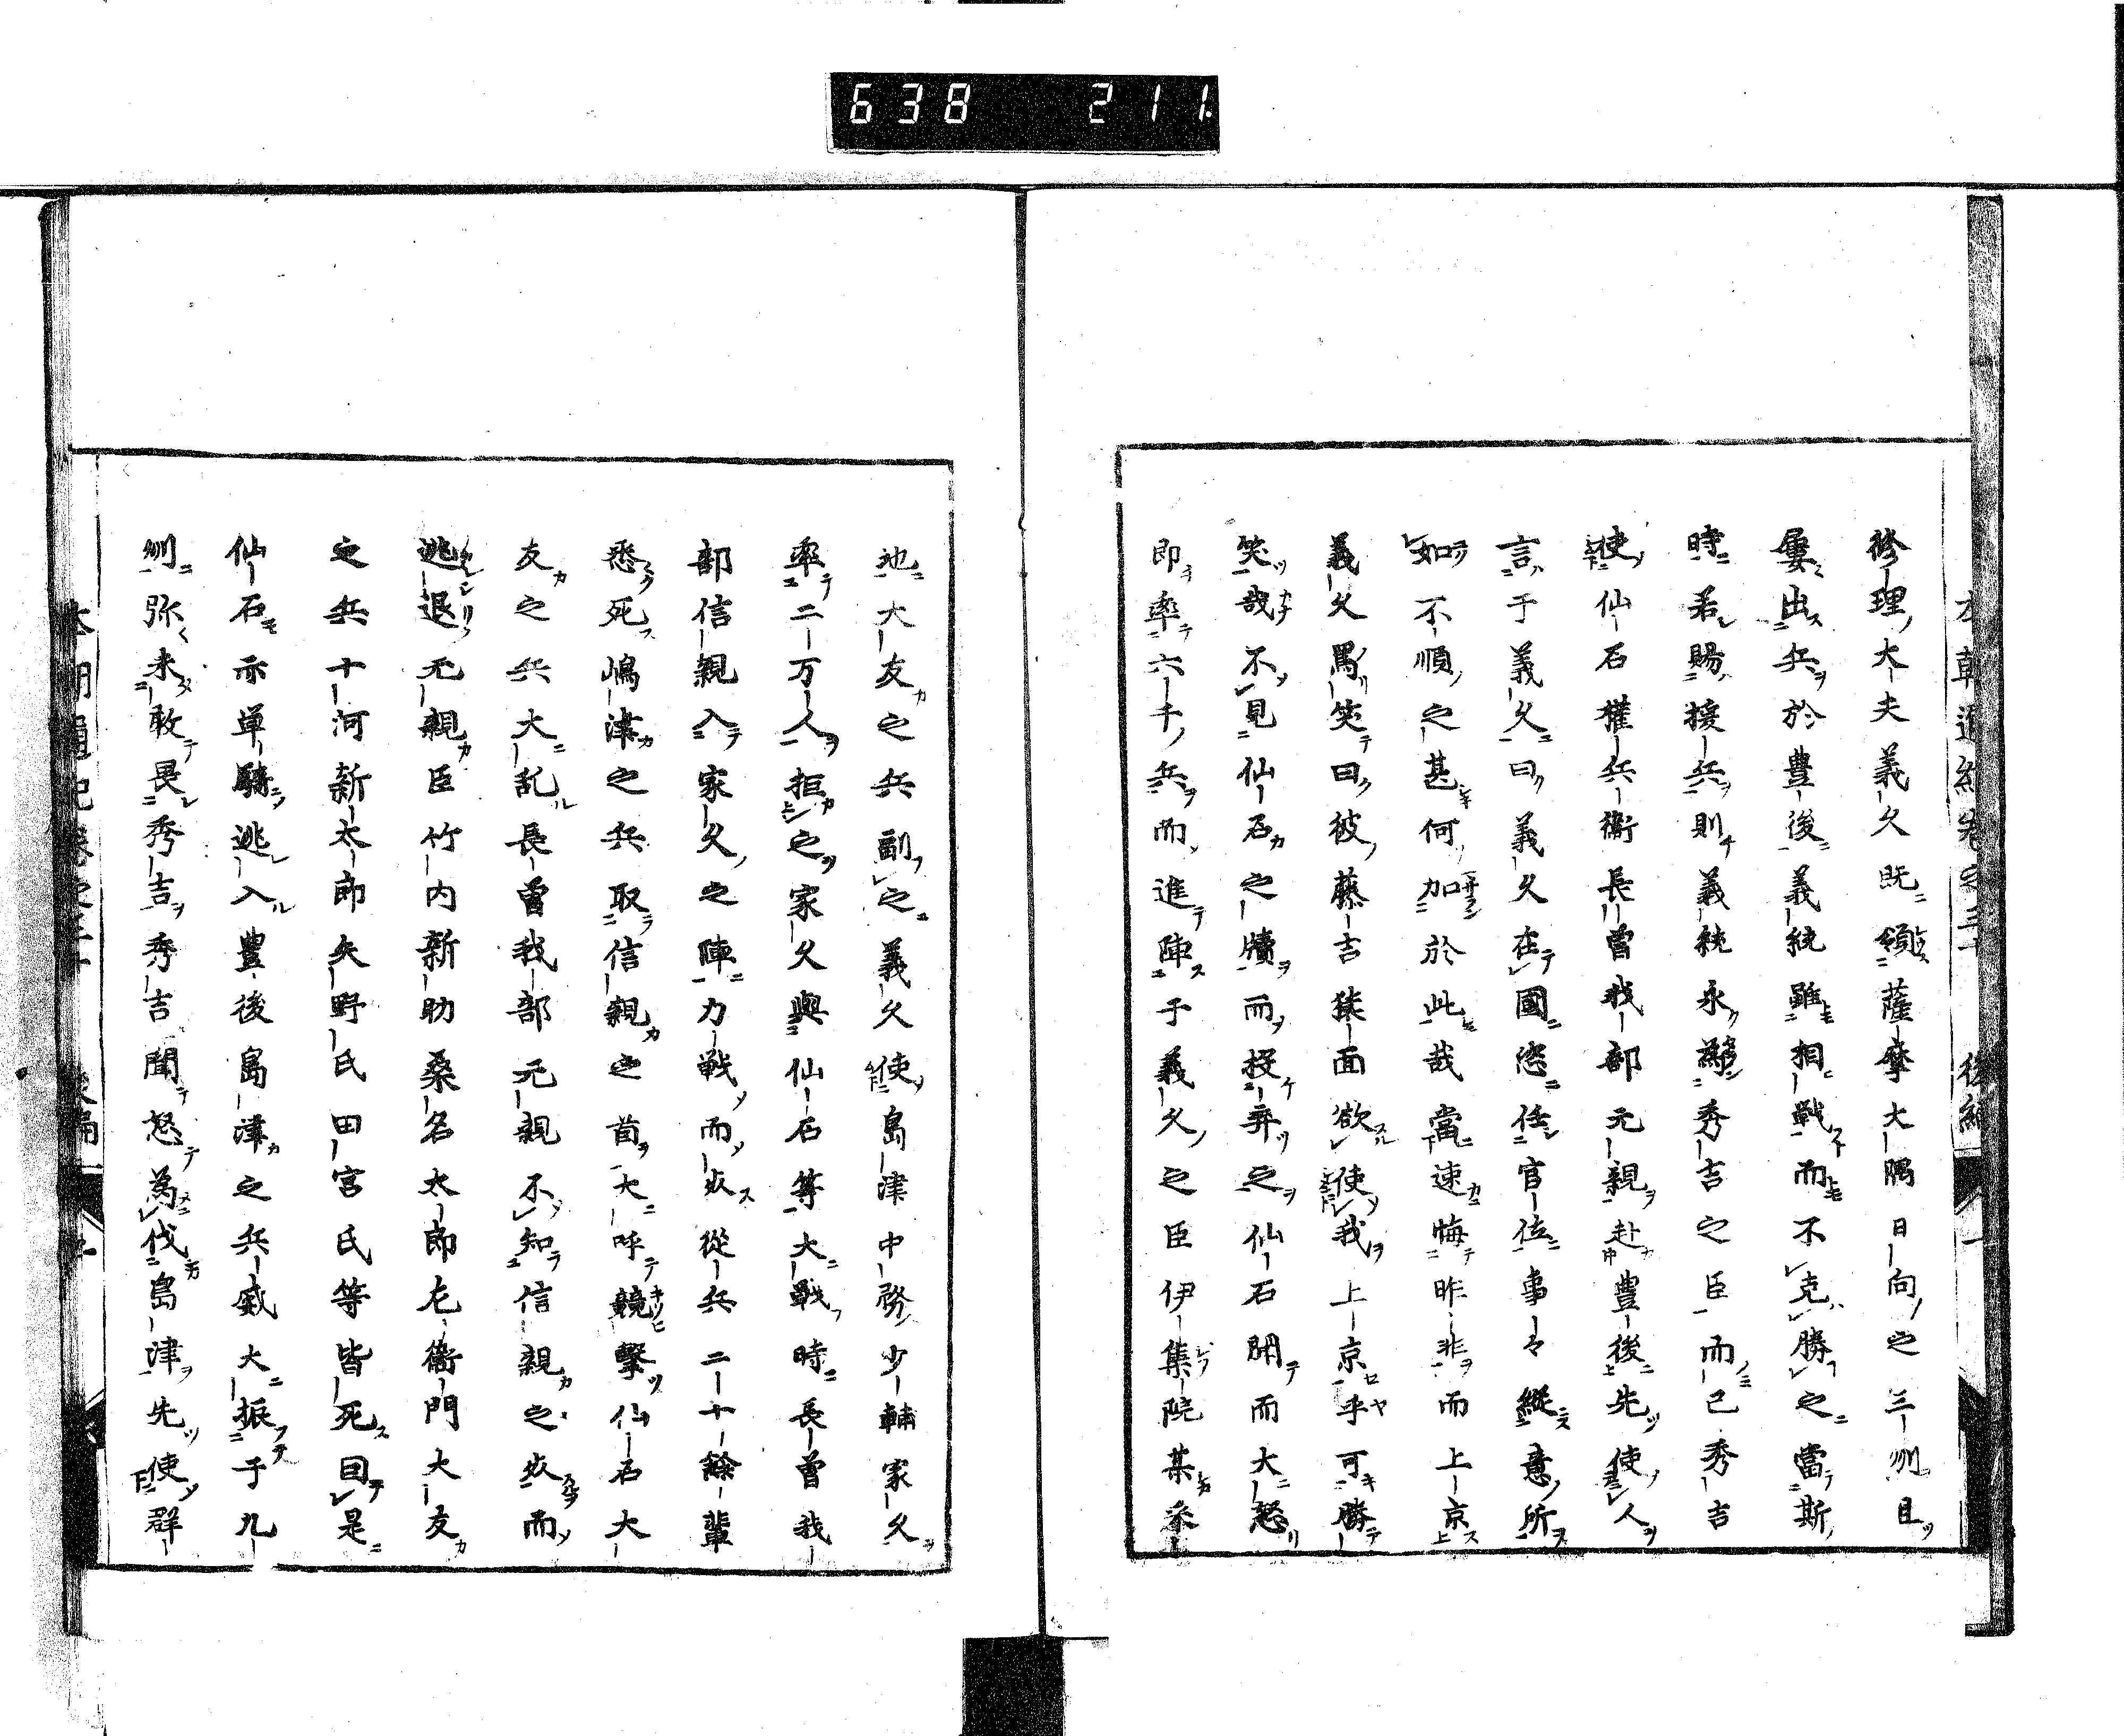 638 211
修理大夫義久既領薩摩大隅日向之三州且
屡出兵於豊後義統雖相戦而不克勝之當斯
時若賜援兵則義統永為秀吉之臣而已秀吉
使仙石権兵衛長曽我部元親赴豊後先使人
言于義久曰義久在國恣任官位事々縦意所
如不順之甚何加於此哉當速悔昨非而上京
義久罵笑曰彼藤吉猿面欲使我上京乎可勝
笑哉不見仙石之牘而投弃之仙石聞而大怒
即率六千兵而進陣于義久之臣伊集院某柔
地大友之兵副之義久使島津中務少輔家久
率二万人拒之家久與仙石等大戦時長曽我
部信親入家久之陣力戦而死從兵二十餘輩
悉死嶋津之兵取信親之首大呼競撃仙石大
友之兵大乱長曽我部元親不知信親之死而
逃退元親臣竹内新助桑名太郎左衛門大友
之兵十河新太郎矢野氏田宮氏等皆死因是
仙石亦単騎逃入豊後島津之兵威大振于九
州弥未敢畏秀吉秀吉聞怒為伐島津先使群